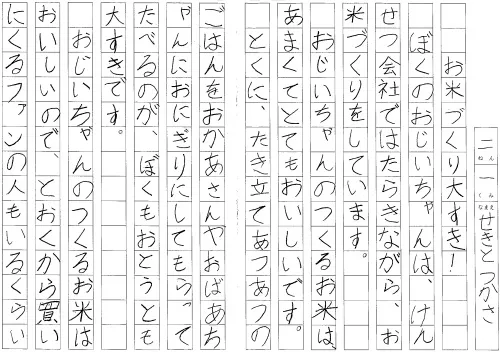 二ねん一くみ
なまえ せきと つかさ
お米づくり大すき！
ぼくのおじいちゃんは、けん
せつ会社ではたらきながら、お
米づくりをしています。
おじいちゃんのつくるお米は、
あまくてとてもおいしいです。
とくに、たき立てあつあつの
ごはんをおかあさんやおばあち
ゃんにおにぎりにしてもらって
たべるのが、ぼくもおとうとも
大すきです。
おじいちゃんのつくるお米は
おいしいので、とおくから買い
にくるファンの人もいるくらい